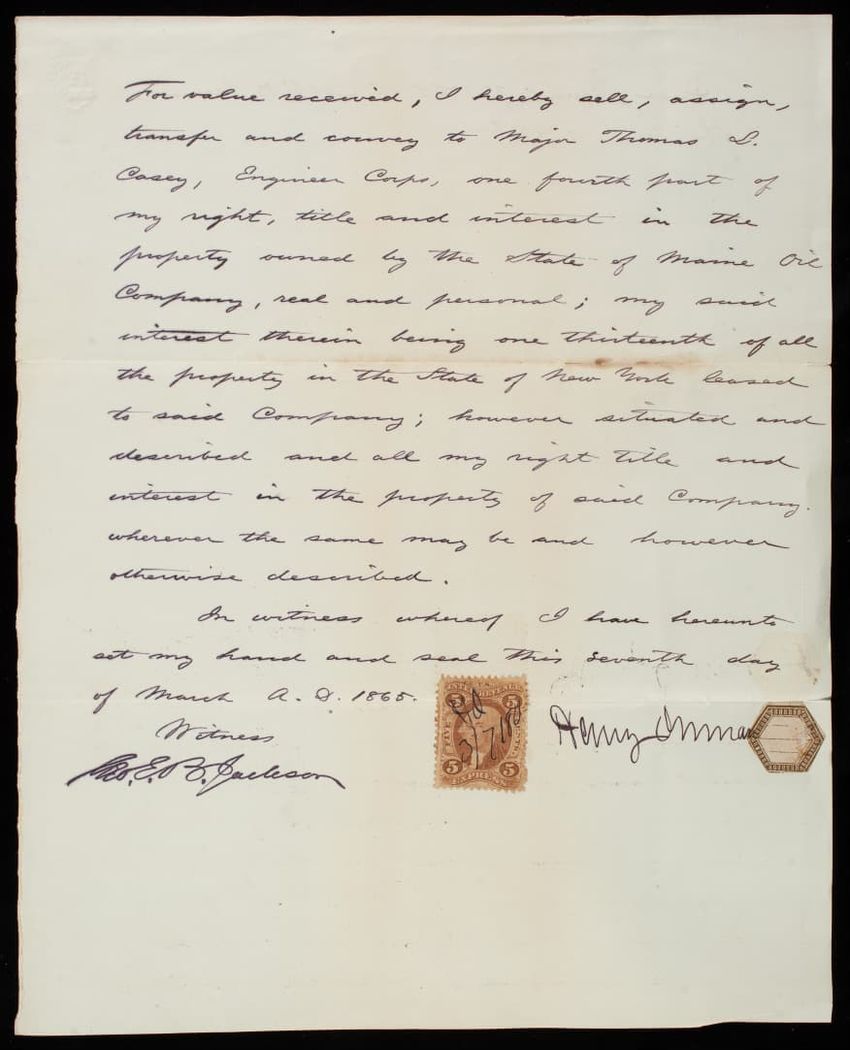 For value received, I hereby sell, assign,
transfer and convey to Major Thomas L.
Casey, Engineer Corps, one fourth part of
my right, title and interest in the
property owned by the State of Maine Oil
Company, real and personal; my said
interest therein being one thirteenth of all
the property in the State of New York leased
to said Company; however situated and
described and all my right title and
interest in the property of said Company.
wherever the same may be and however
otherwise described.
In witness whereof I have hereunto
set my hand and seal this seventh day
of March A. D. 1865.
Witness
Geo. E. B. Jackson
Henry Inman
5 5
EXPRESS